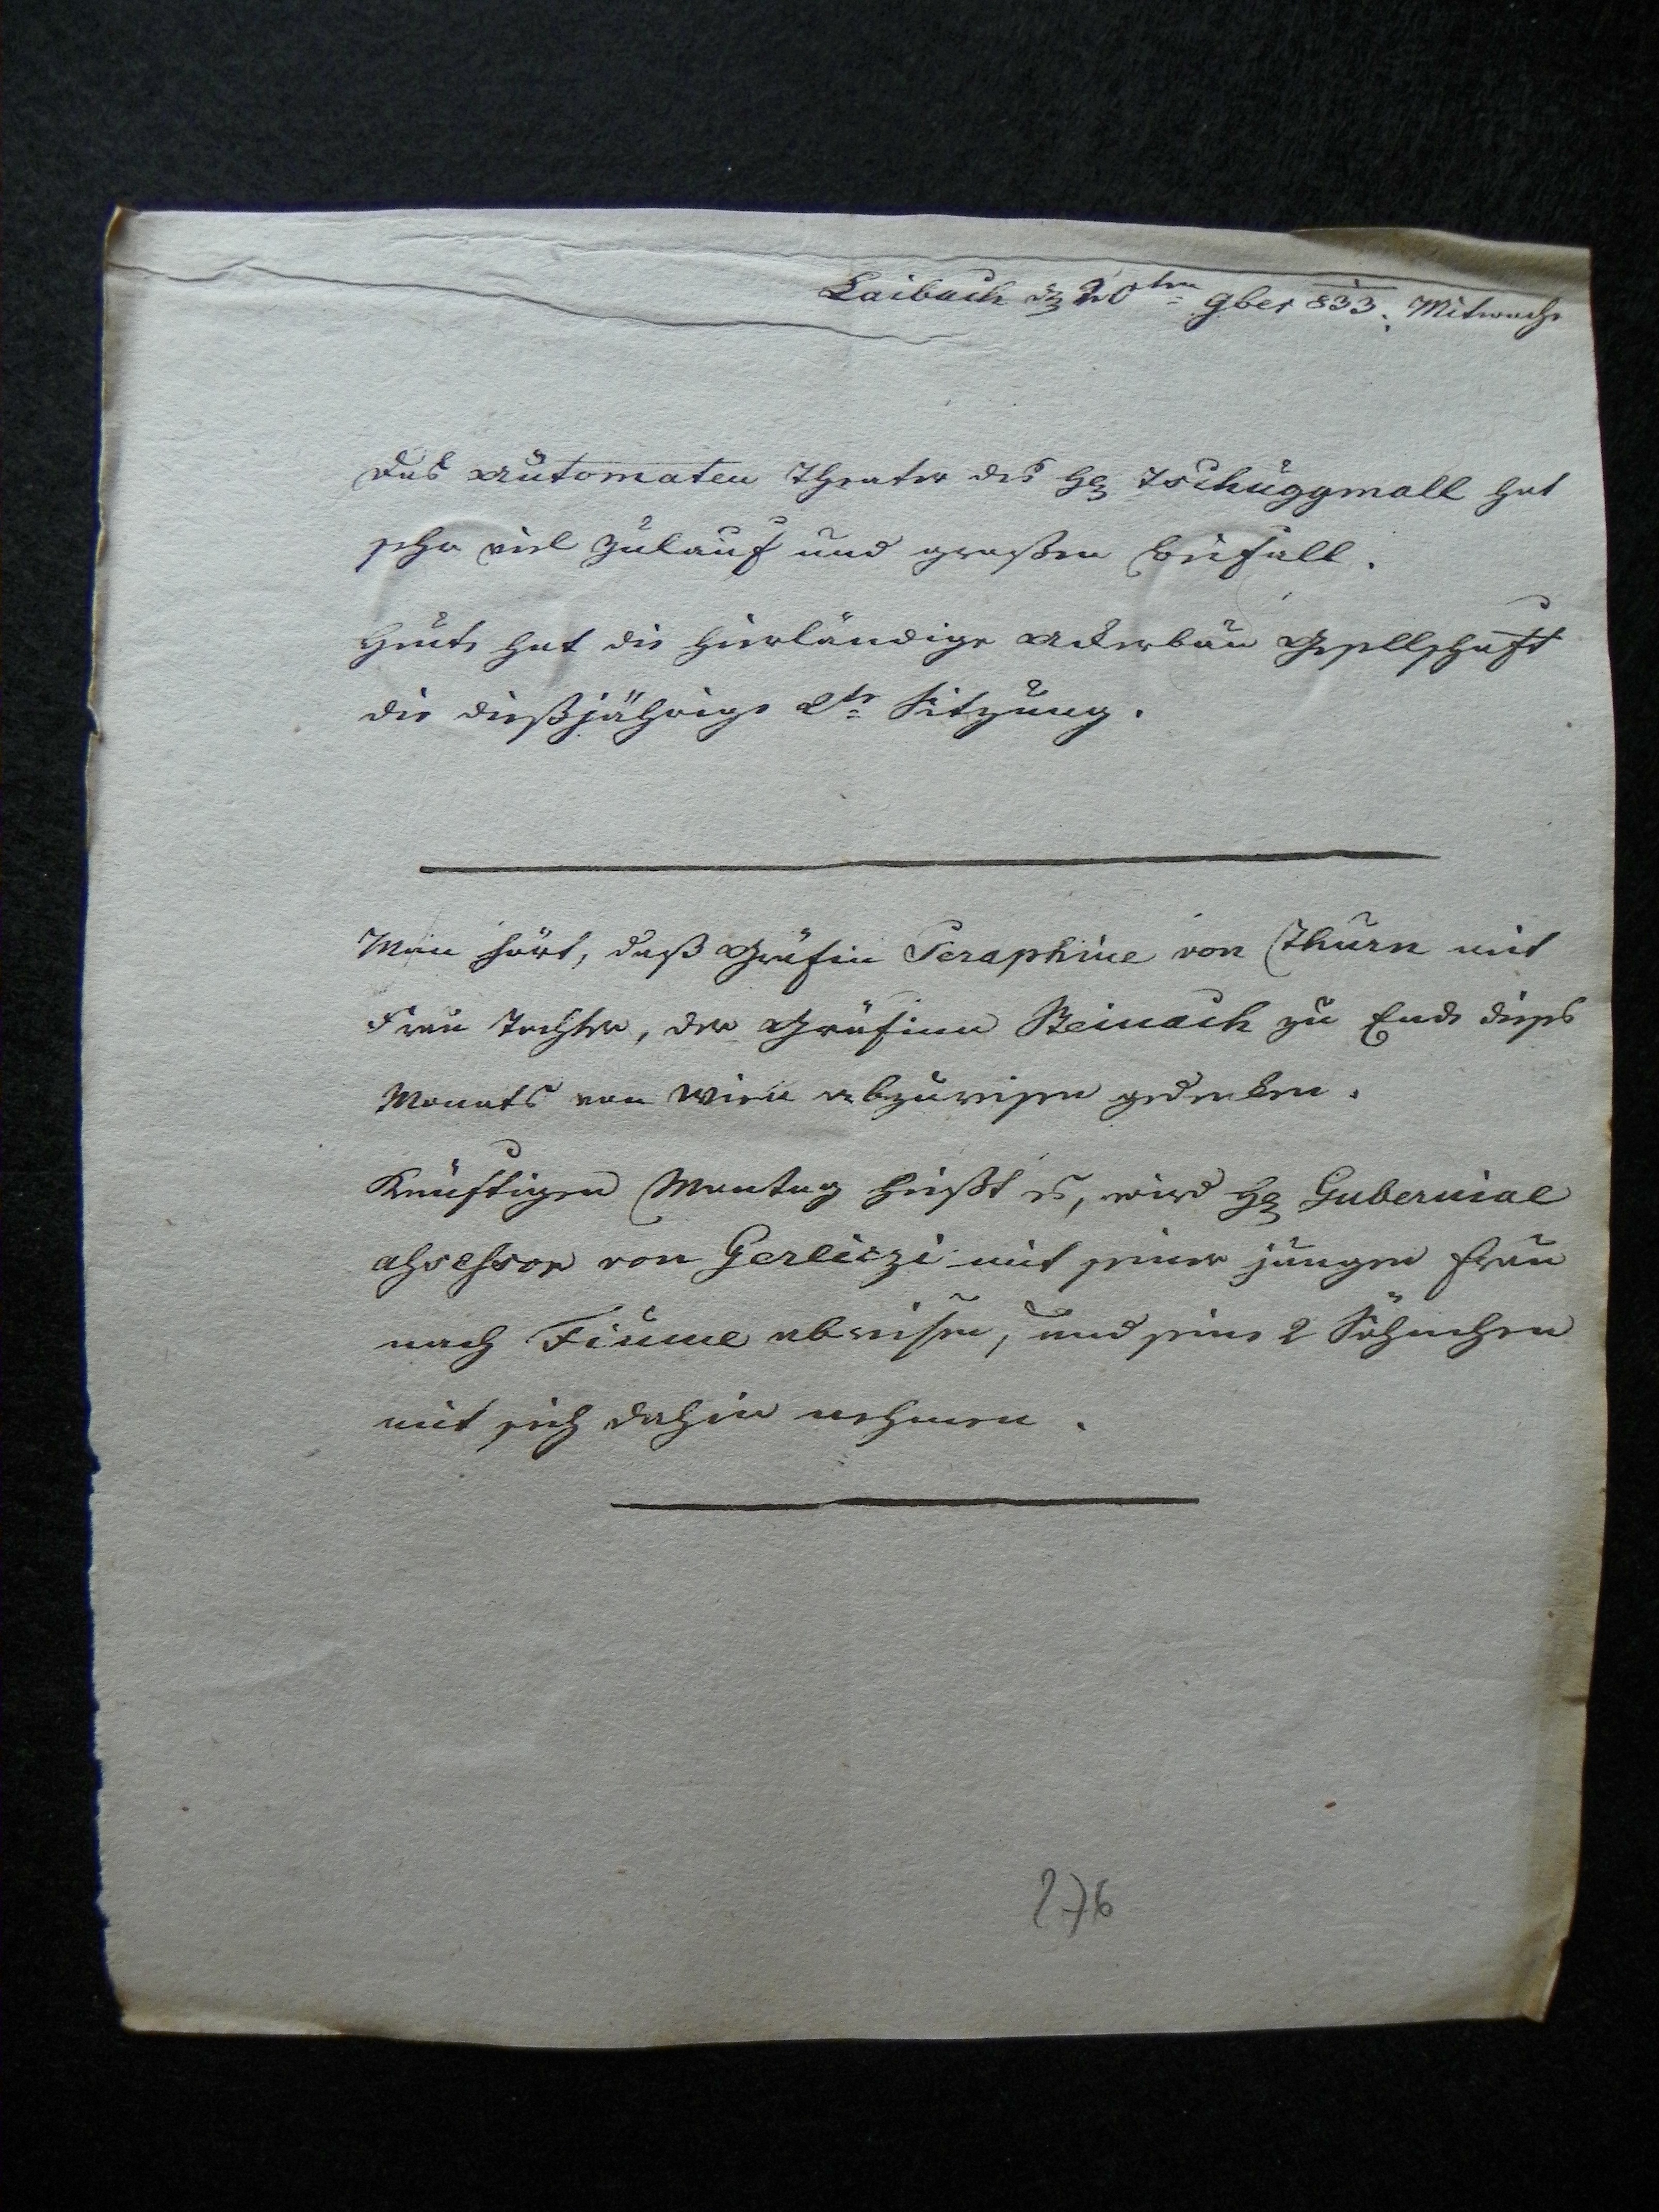 Laibach d 20ten 9ber 833. Mitwoche
Das Automaten Theater des H. Tschuggmall hat
sehr viel Zulauf und großen Beifall.
Heute hat die hierländige Ackerbau Gesellschaft
die dießjährige 2te Sitzung.
Man hört, daß Gräfin Seraphine von Thurn mit
Frau Tochter, der Gräfinn Steinach zu Ende dieses
Monats von Wien abzureisen gedenken.
Künftigen Montag heißt es, wird H. Gubernial
Assessor von Gerliczi mit seiner jungen Frau
nach Fiume abreisen, und seine 2 Söhnchen
mit sich dahin nehmen.
276